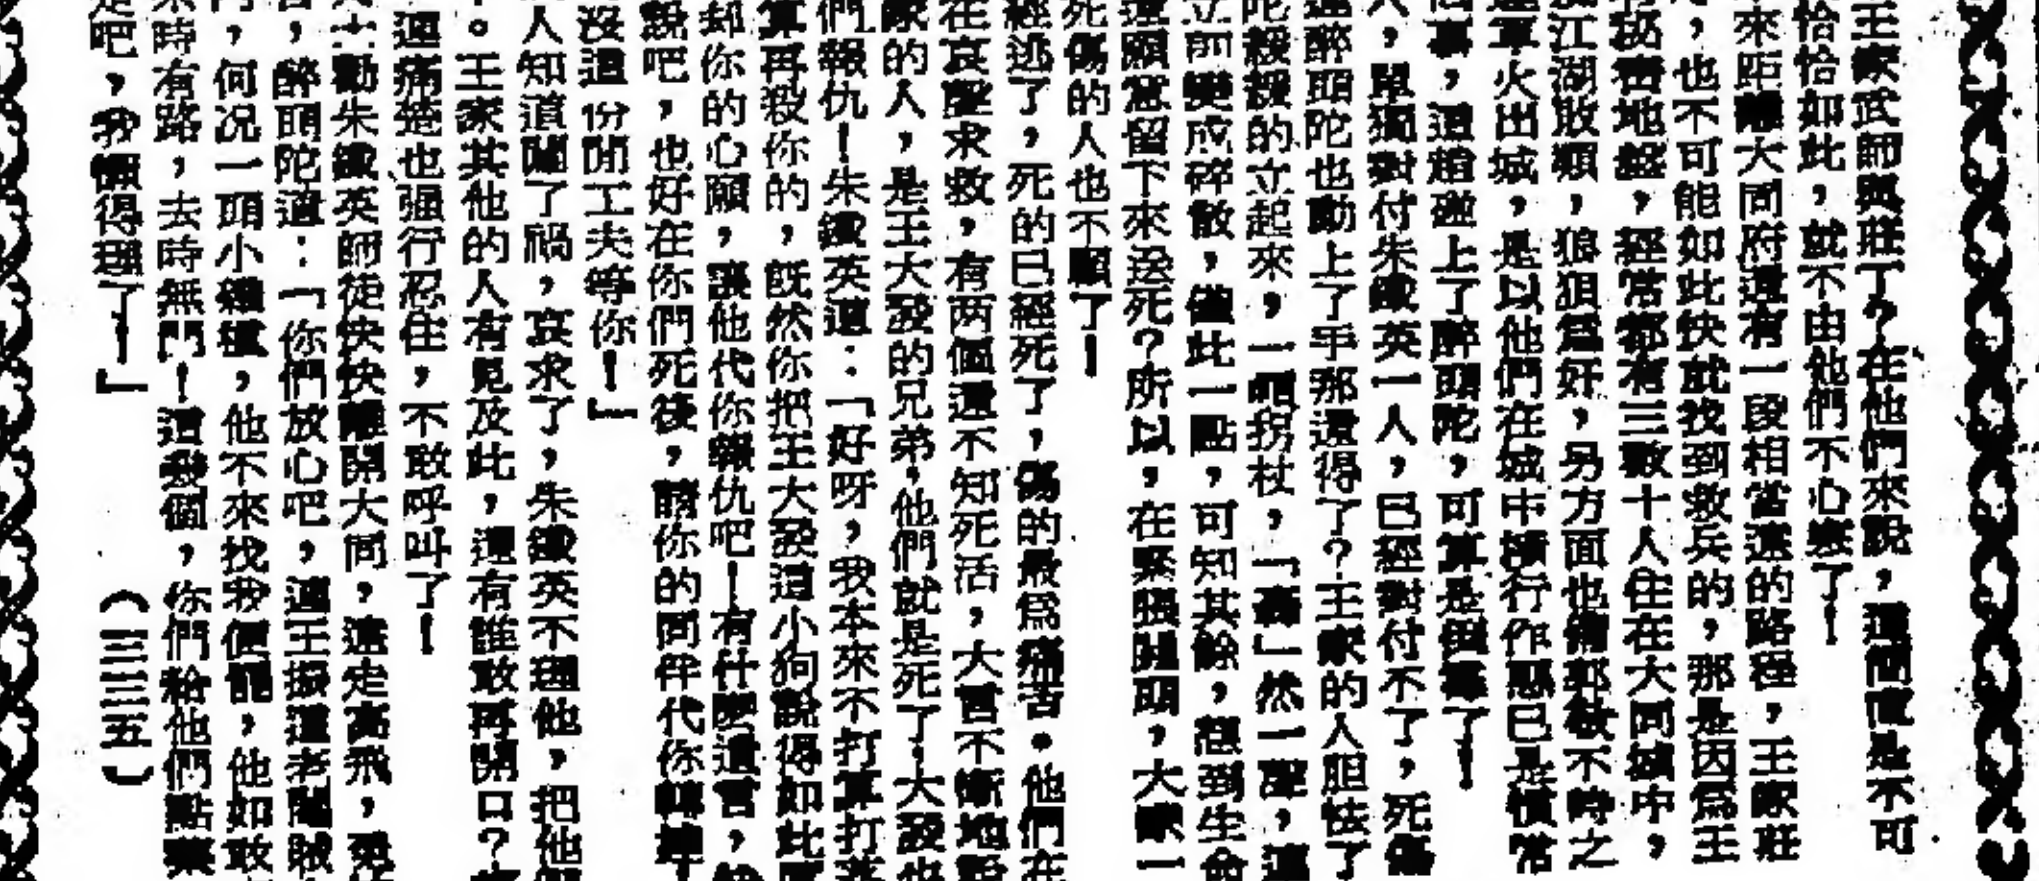 王家武師與莊丁?在他們來說,這簡直是不可
恰恰如此,就不由他們不心寒了!
來距離大同府還有一段相當遠的路程,王家莊
,也不可能如此快就找到救兵的,那是因爲王
有秘密地盤,經常都有三數十人住在大同城中,
江湖敗類,狼狽爲奸,另方面也備郭敬不時之
軍火出城,是以他們在城中橫行作惡已是慣常
事,這趟碰上了醉頭陀,可算是倒霉了!
,單獨對付朱鐵英一人,已經對付不了,死傷
醉頭陀也動上了手那還得了?王家的人胆怯了
陀緩緩的立起來,一擺拐杖,「轟」然一聲,
立即變成碎散,僅此一點,可知其餘,想到生命
還願意留下來送死?所以,在緊張關頭,大家一
死傷的人也不顧了!
經逃了,死的已經死了,傷的最爲痛苦。他們在
在哀聲求救,有两個還不知死活,大言不慚地說
家的人,是王大發的兄弟,他們就是死了,大發也
們報仇!朱鐵英道:「好呀,我本來不打算打
算再殺你的,既然你把王大發這小狗說得如此
却你的心願,讓他代你報仇吧!有什麼遺言,
說吧,也好在你們死後,請你的同伴代你轉
沒這份閒工夫等你!」
人知道闖了禍,哀求了,朱鐵英不理他,把他
。王家其他的人有見及此,還有誰敢再開口?
連痛楚也强行忍住,不敢呼叫了!
勸朱鐵英師徒快快離開大同,遠走高飛,免
,醉頭陀道:「你們放心吧,連王振這老閹賊
,何况一頭小雜種,他不來找我便罷,他如敢
來時有路,去時無門!這幾個,你們給他們點藥
是吧,我懶得理了!」 (三三五)